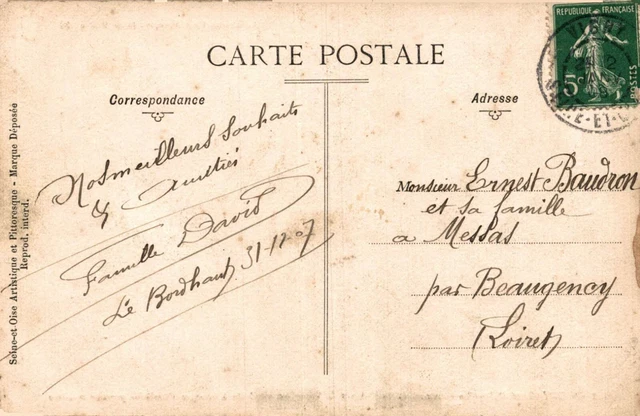 CARTE POSTALE
Correspondance
Nos meilleurs Souhaits
& Amitiés
Famille David
Le Bordhaut 31-12-07
Adresse
Monsieur Ernest Baudron
et sa famille
a Messas
par Beaugency
(Loiret)
REPUBLIQUE FRANÇAISE
5c
POSTES
Seine-et Oise Artistique et Pittoresque - Marque Déposée
Reprod. interd.